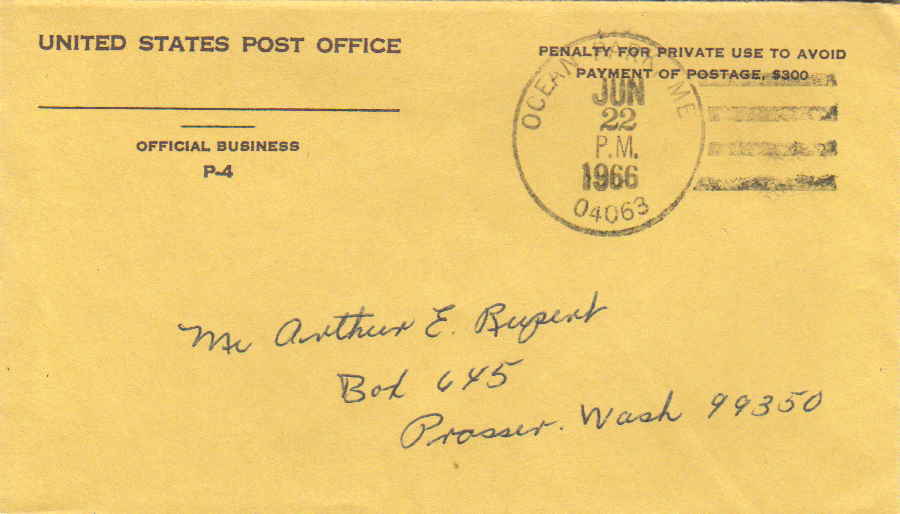 UNITED STATES POST OFFICE
OFFICIAL BUSINESS
P-4
PENALTY FOR PRIVATE USE TO AVOID
PAYMENT OF POSTAGE, $300
OCEAN PARK ME
JUN
22
P.M.
1966
04063
Mr Arthur E. Rupert
Box 645
Prosser. Wash 99350